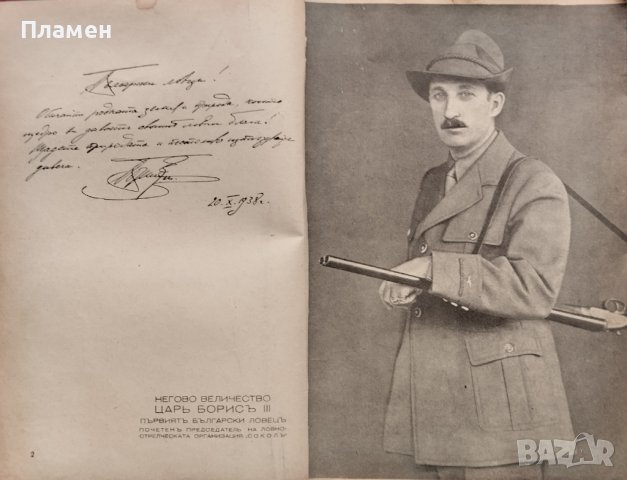 Пламен
Български ловци!
Обичайте родната земя и природа, които
щедро ви даватъ своитѣ ловни блага!
Щадете природата и
дивеча.
20.X.1938 г.
НЕГОВО ВЕЛИЧЕСТВО
ЦАРЬ БОРИСЪ III
ПЪРВИЯТЪ БЪЛГАРСКИ ЛОВЕЦЪ
ПОЧЕТЕНЪ ПРЕДСЕДАТЕЛЬ НА ЛОВНО-
СТРЕЛЧЕСКАТА ОРГАНИЗАЦИЯ „СОКОЛЪ“
2
BAZAR